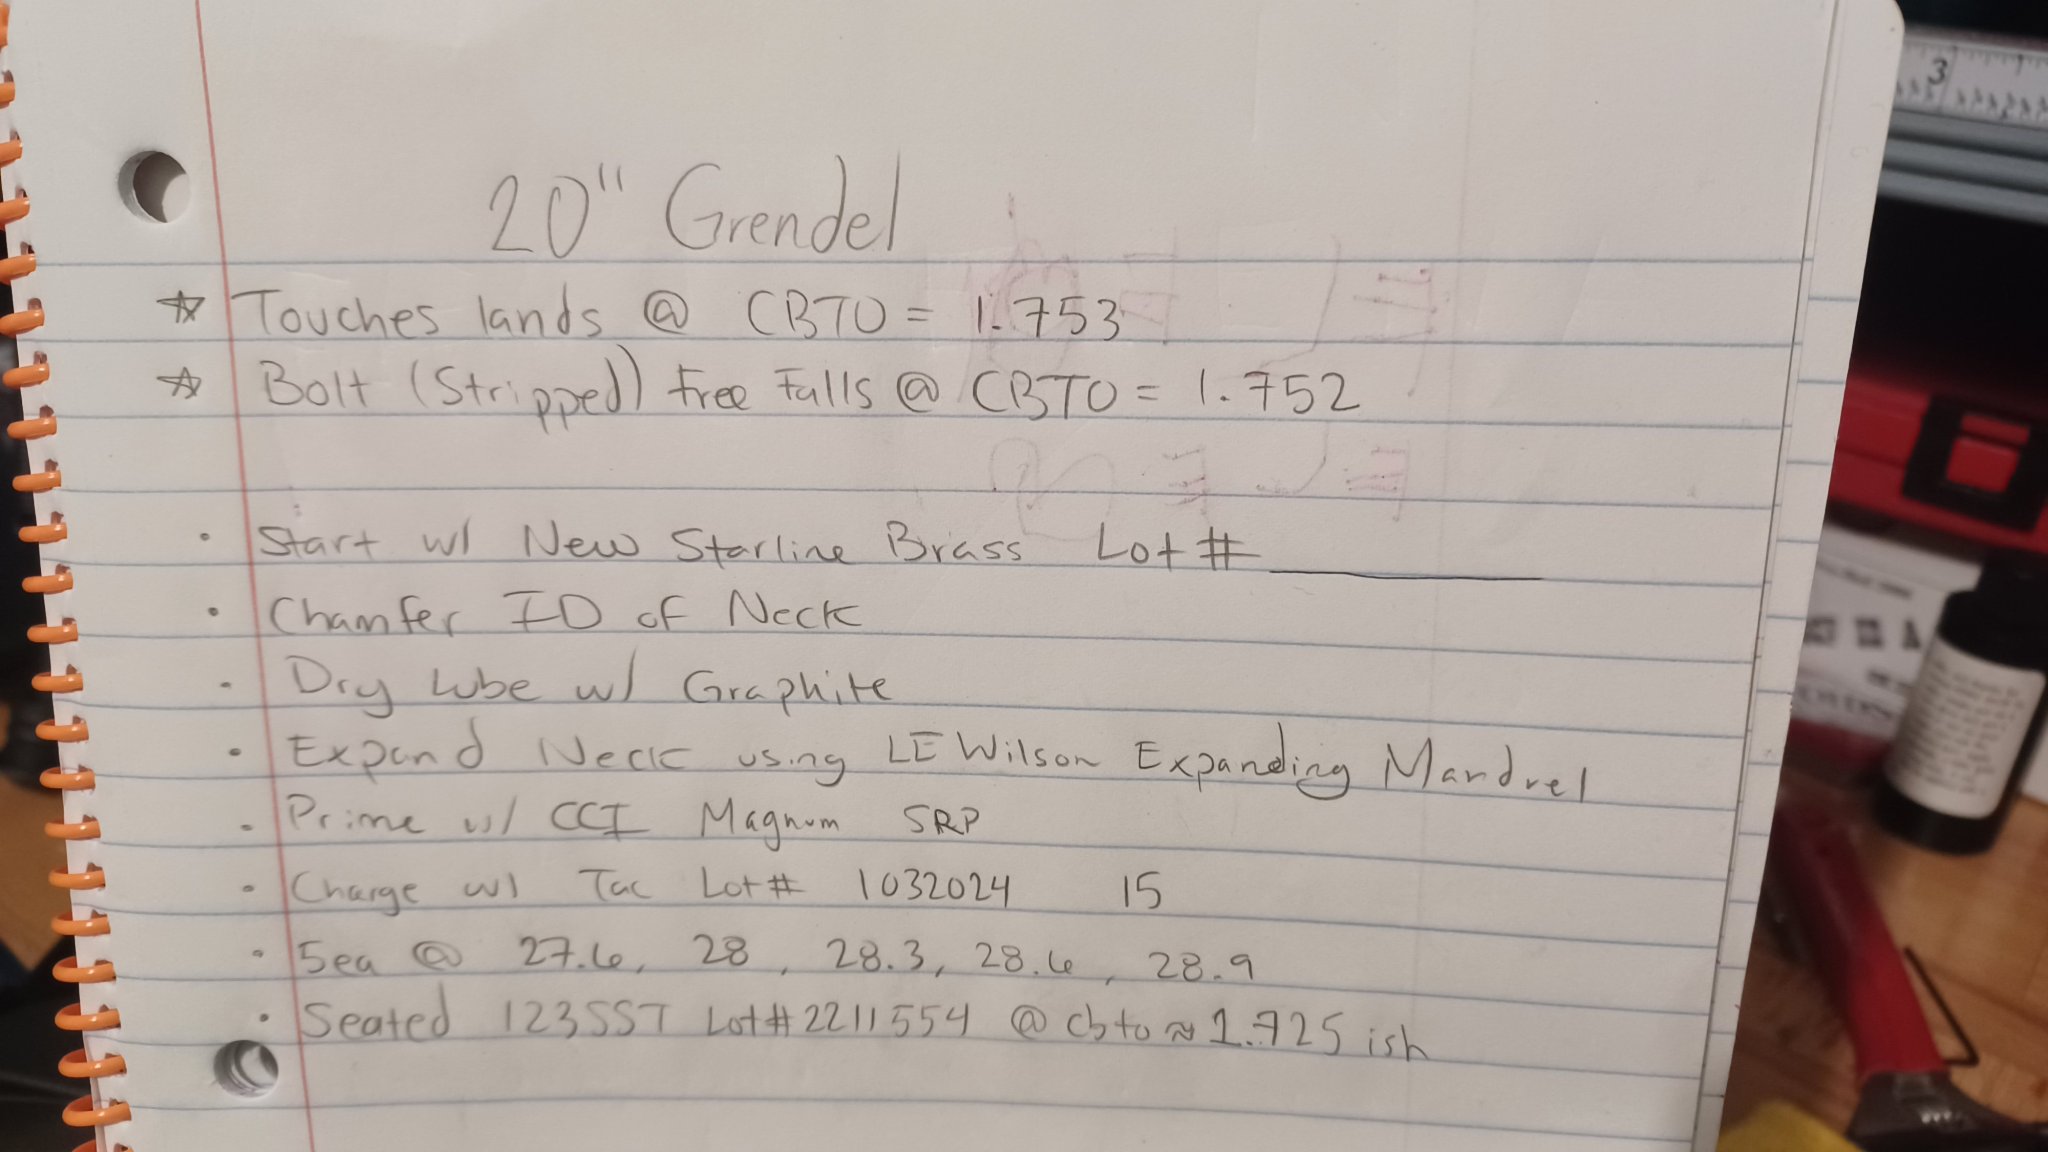 20" Grendel
☆ Touches lands @ CBTO = 1.753
☆ Bolt (Stripped) free falls @ CBTO = 1.752
· Start w/ New Starline Brass Lot # ________
· Chamfer ID of Neck
· Dry lube w/ Graphite
· Expand Neck using LE Wilson Expanding Mandrel
· Prime w/ CCI Magnum SRP
· Charge w/ Tac Lot# 1032024 15
· 5ea @ 27.6, 28, 28.3, 28.6, 28.9
· Seated 123SST Lot# 2211554 @ cbto ≈ 1.725 ish
3